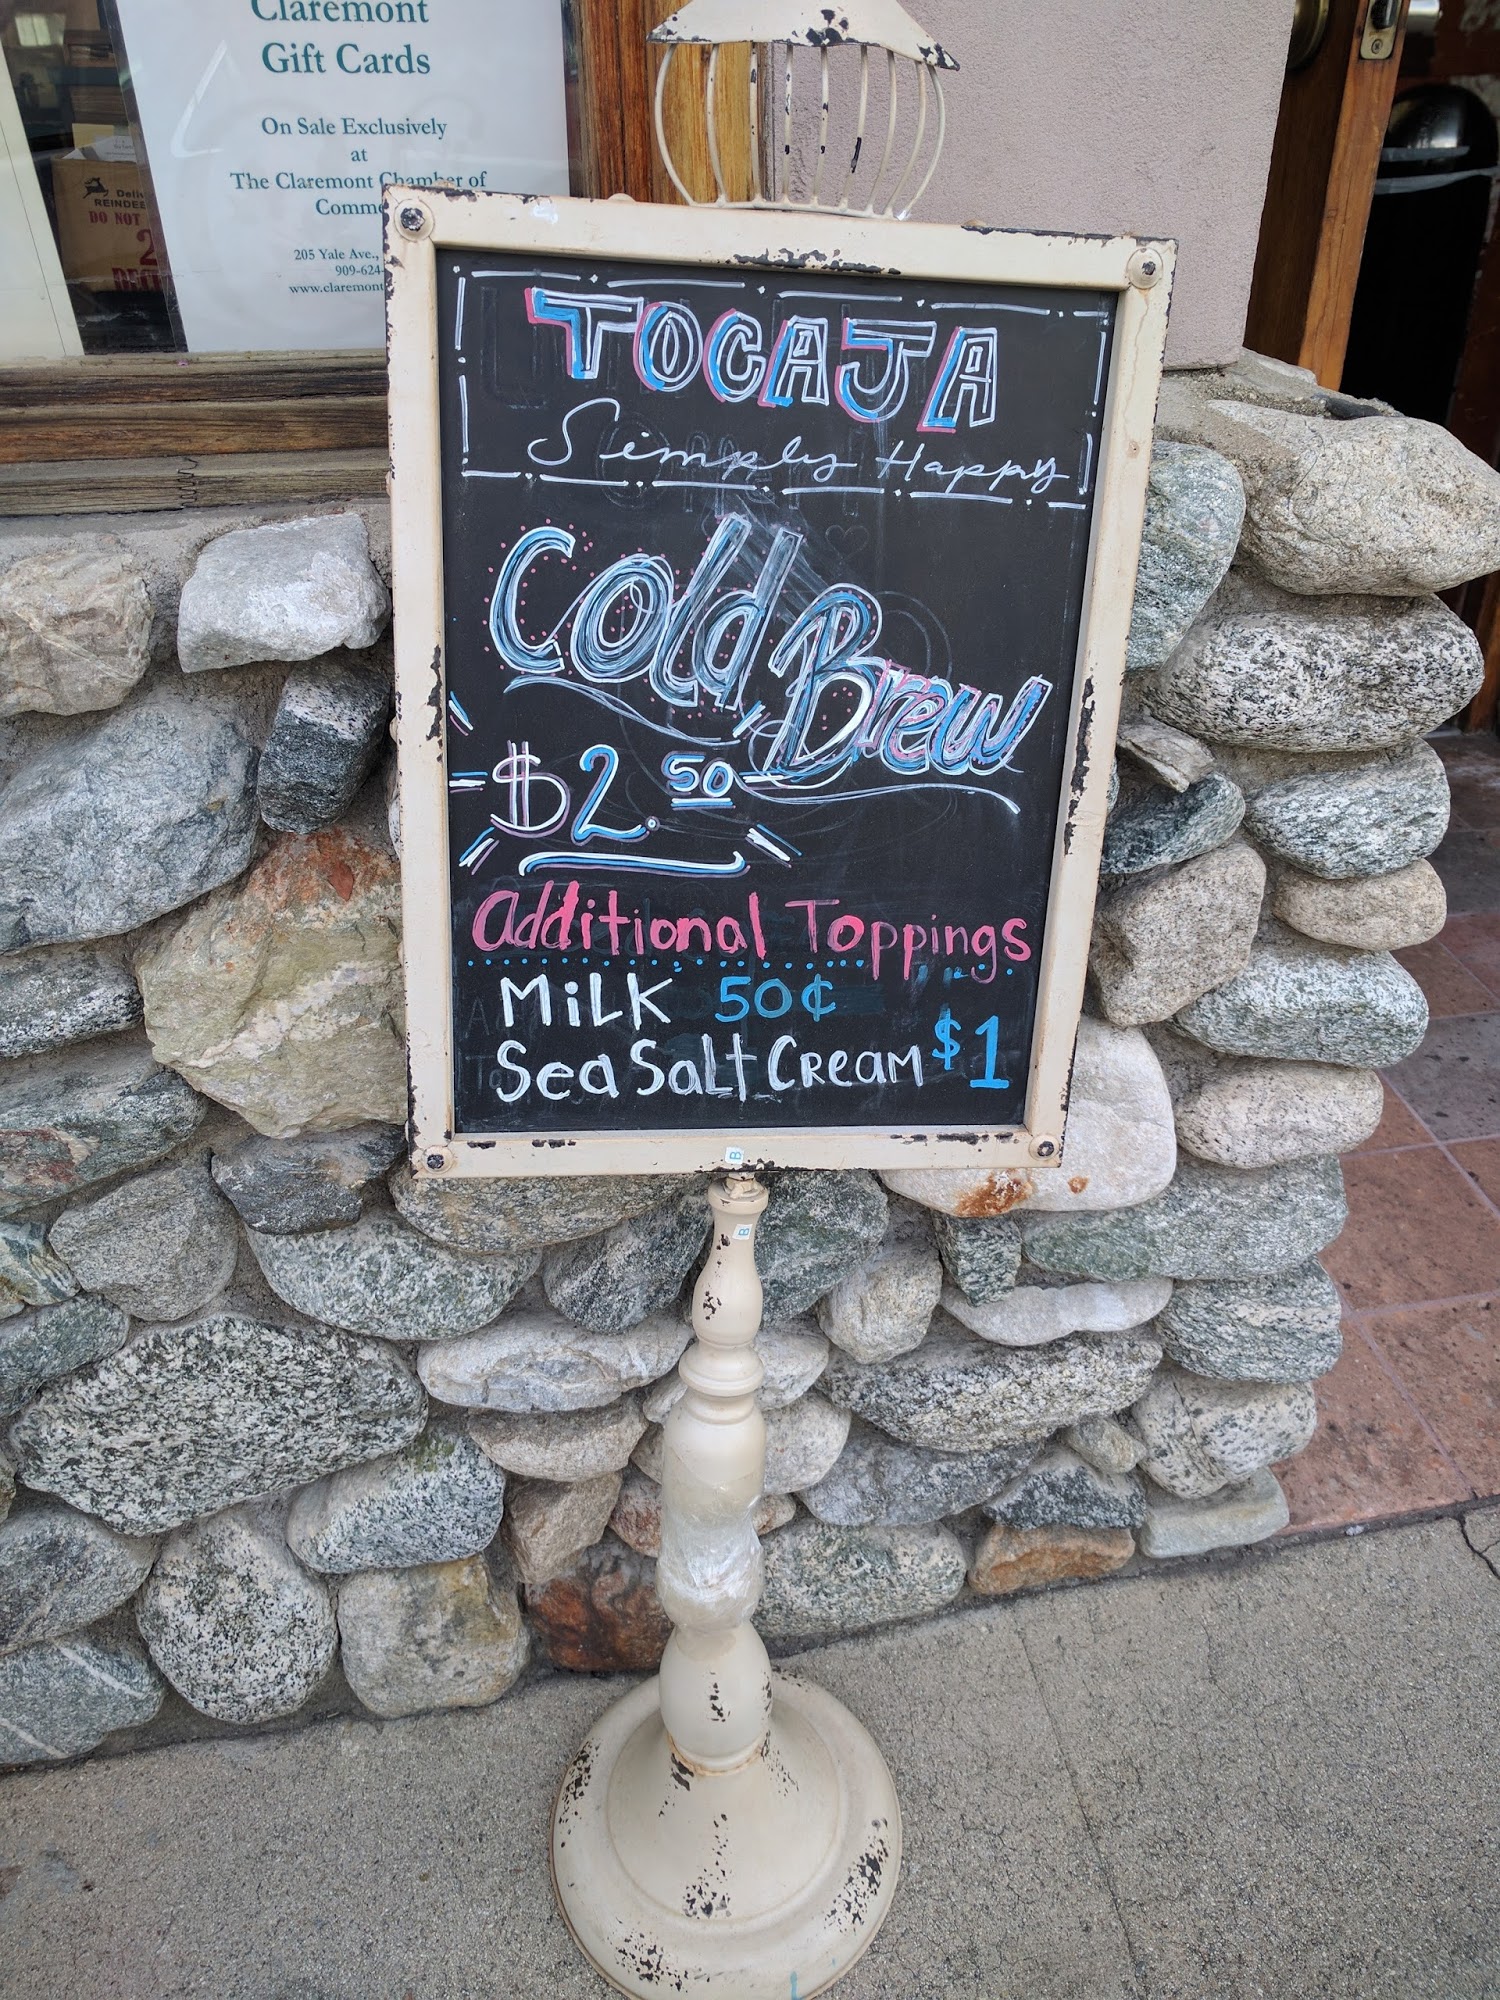 Claremont
Gift Cards
On Sale Exclusively
at
The Claremont Chamber of
205 Yale Ave.,
909-624-
DO NOT
TOCAJA
Simply Happy
Cold Brew
$2.50
Additional Toppings
MiLK 50¢
Sea SaLt CReaM $1
B
B